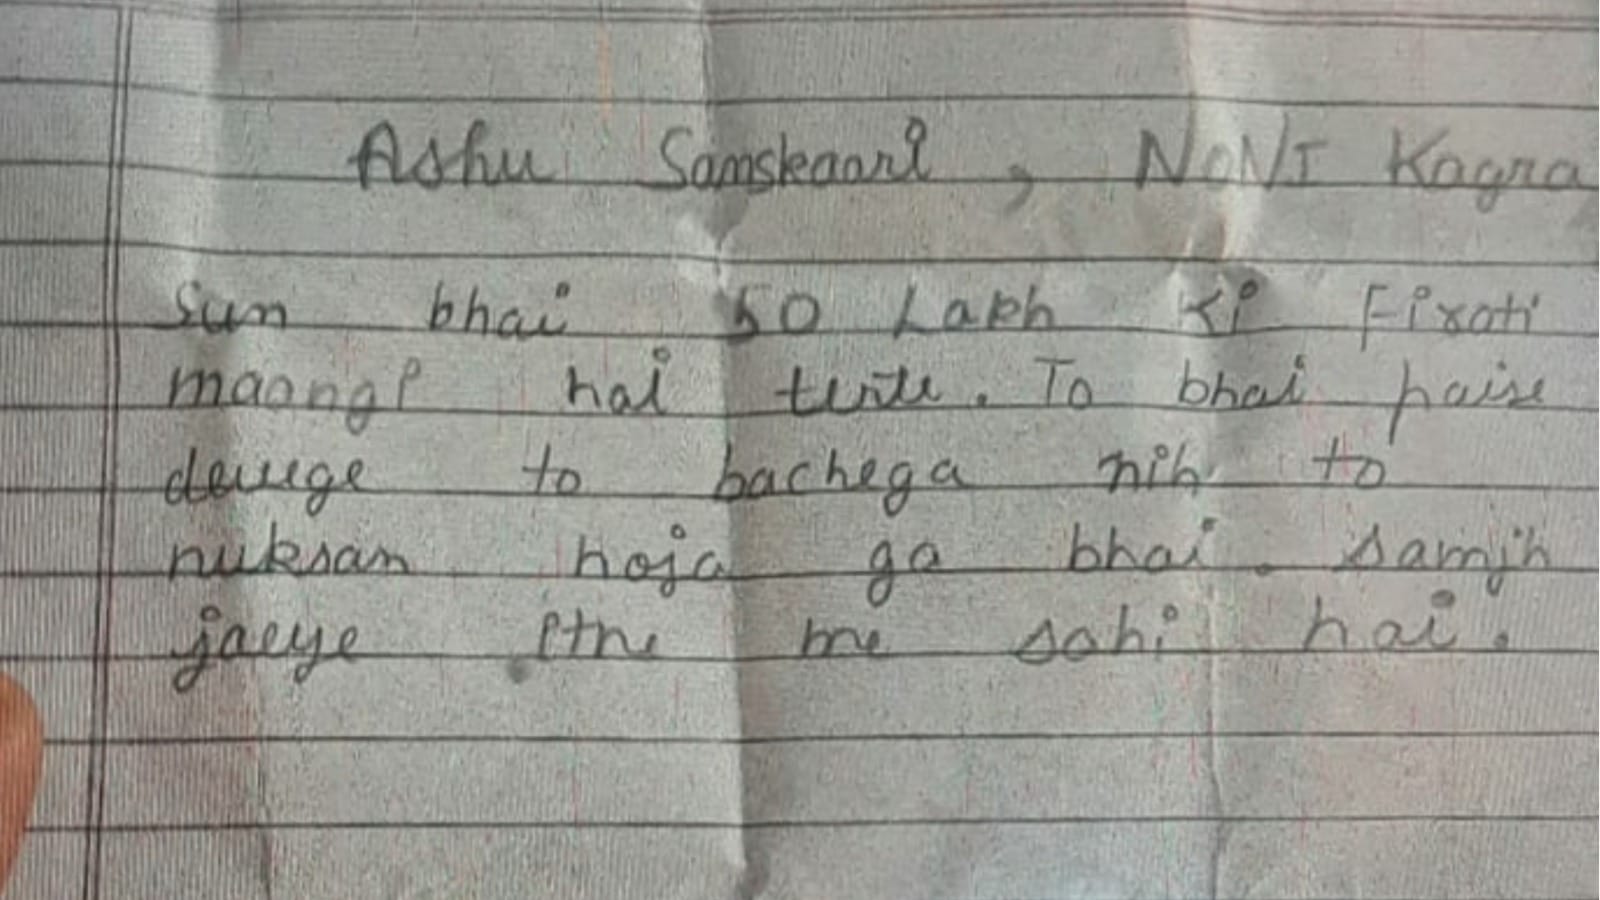 Ashu Samskaarl , NoNI Kagra
Sun bhai 50 Lakh Ki Firoti
maangi hai tute. To bhai paise
deuege to bachega nih to
nuksan hoja ga bhai. Samjh
jaeye itne me sahi hai.